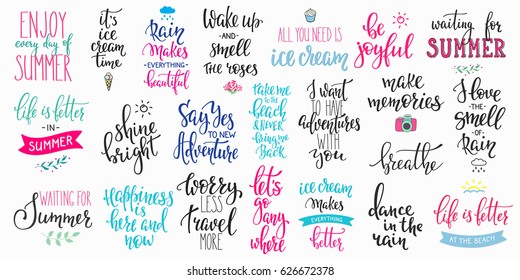 ENJOY
every day of
SUMMER
it's
ice
cream
time
Rain
MAKES
EVERYTHING
beautiful
Wake up
AND
smell
THE ROSES
ALL YOU NEED IS
ice cream
be
joyful
waiting for
SUMMER
life is better
IN
SUMMER
shine
bright
Say Yes
TO NEW
Adventure
take me
to the
beach
& NEVER
bring me
Back
I want
TO HAVE
adventures
WITH
you
make
memories
breathe
I love
THE
smell
OF
Rain
WAITING FOR
Summer
Happiness
is
here and
now
worry
LESS
travel
MORE
let's
go
any
where
ice cream
MAKES
EVERYTHING
better
dance
in the
rain
life is better
AT THE BEACH
shutterstock.com · 626672378